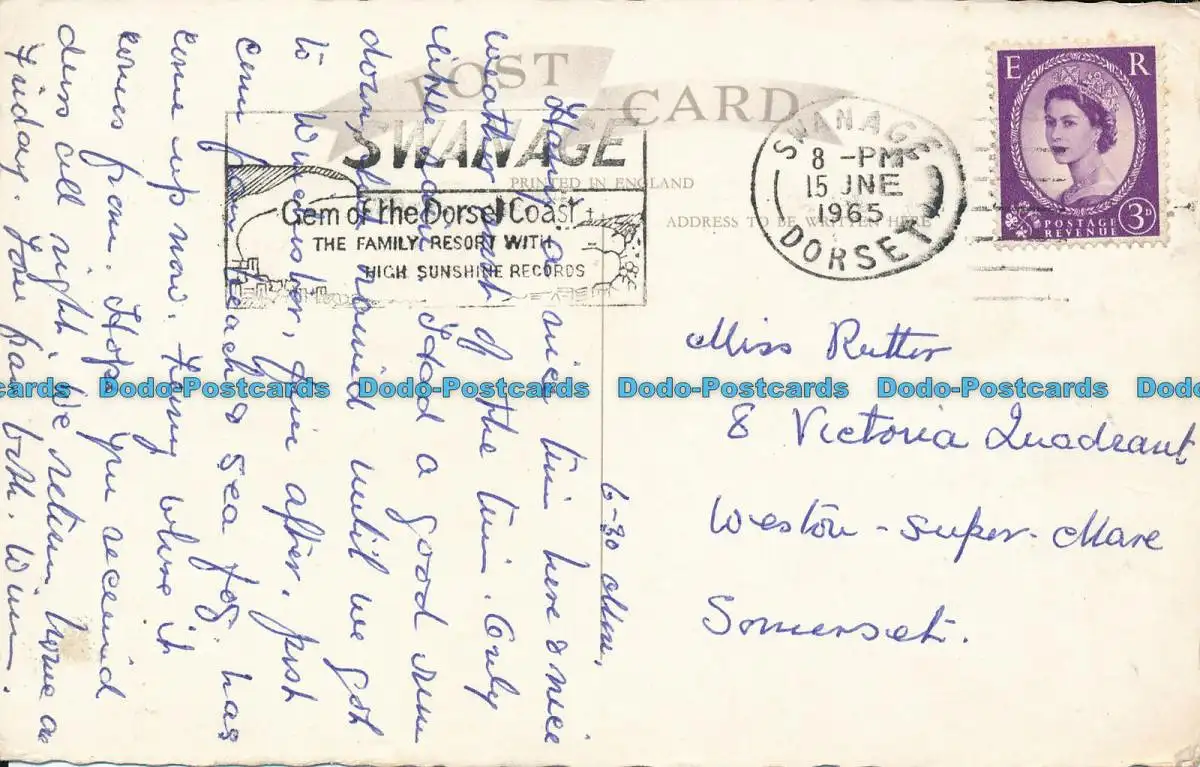 POST CARD
PRINTED IN ENGLAND
ADDRESS TO BE WRITTEN HERE
SWANAGE
Gem of the Dorset Coast
THE FAMILY RESORT WITH
HIGH SUNSHINE RECORDS
SWANAGE
8 - PM
15 JNE
1965
DORSET
E R
POSTAGE
REVENUE
3D
6-30 Mon.
Having a nice time here & nice
weather most of the time. Only
like rain. Had a good run
down, rain until we got
to Wincanton, fine after. Just
come from beach & sea fog has
come up now. Funny where it
comes from. Hope you received
dess all right. We return home on
Friday. Love you both. Win.
Miss Rutter
8 Victoria Quadrant
Weston-super-Mare
Somerset.
Dodo-Postcards Dodo-Postcards Dodo-Postcards Dodo-Postcards Dodo-Postcards